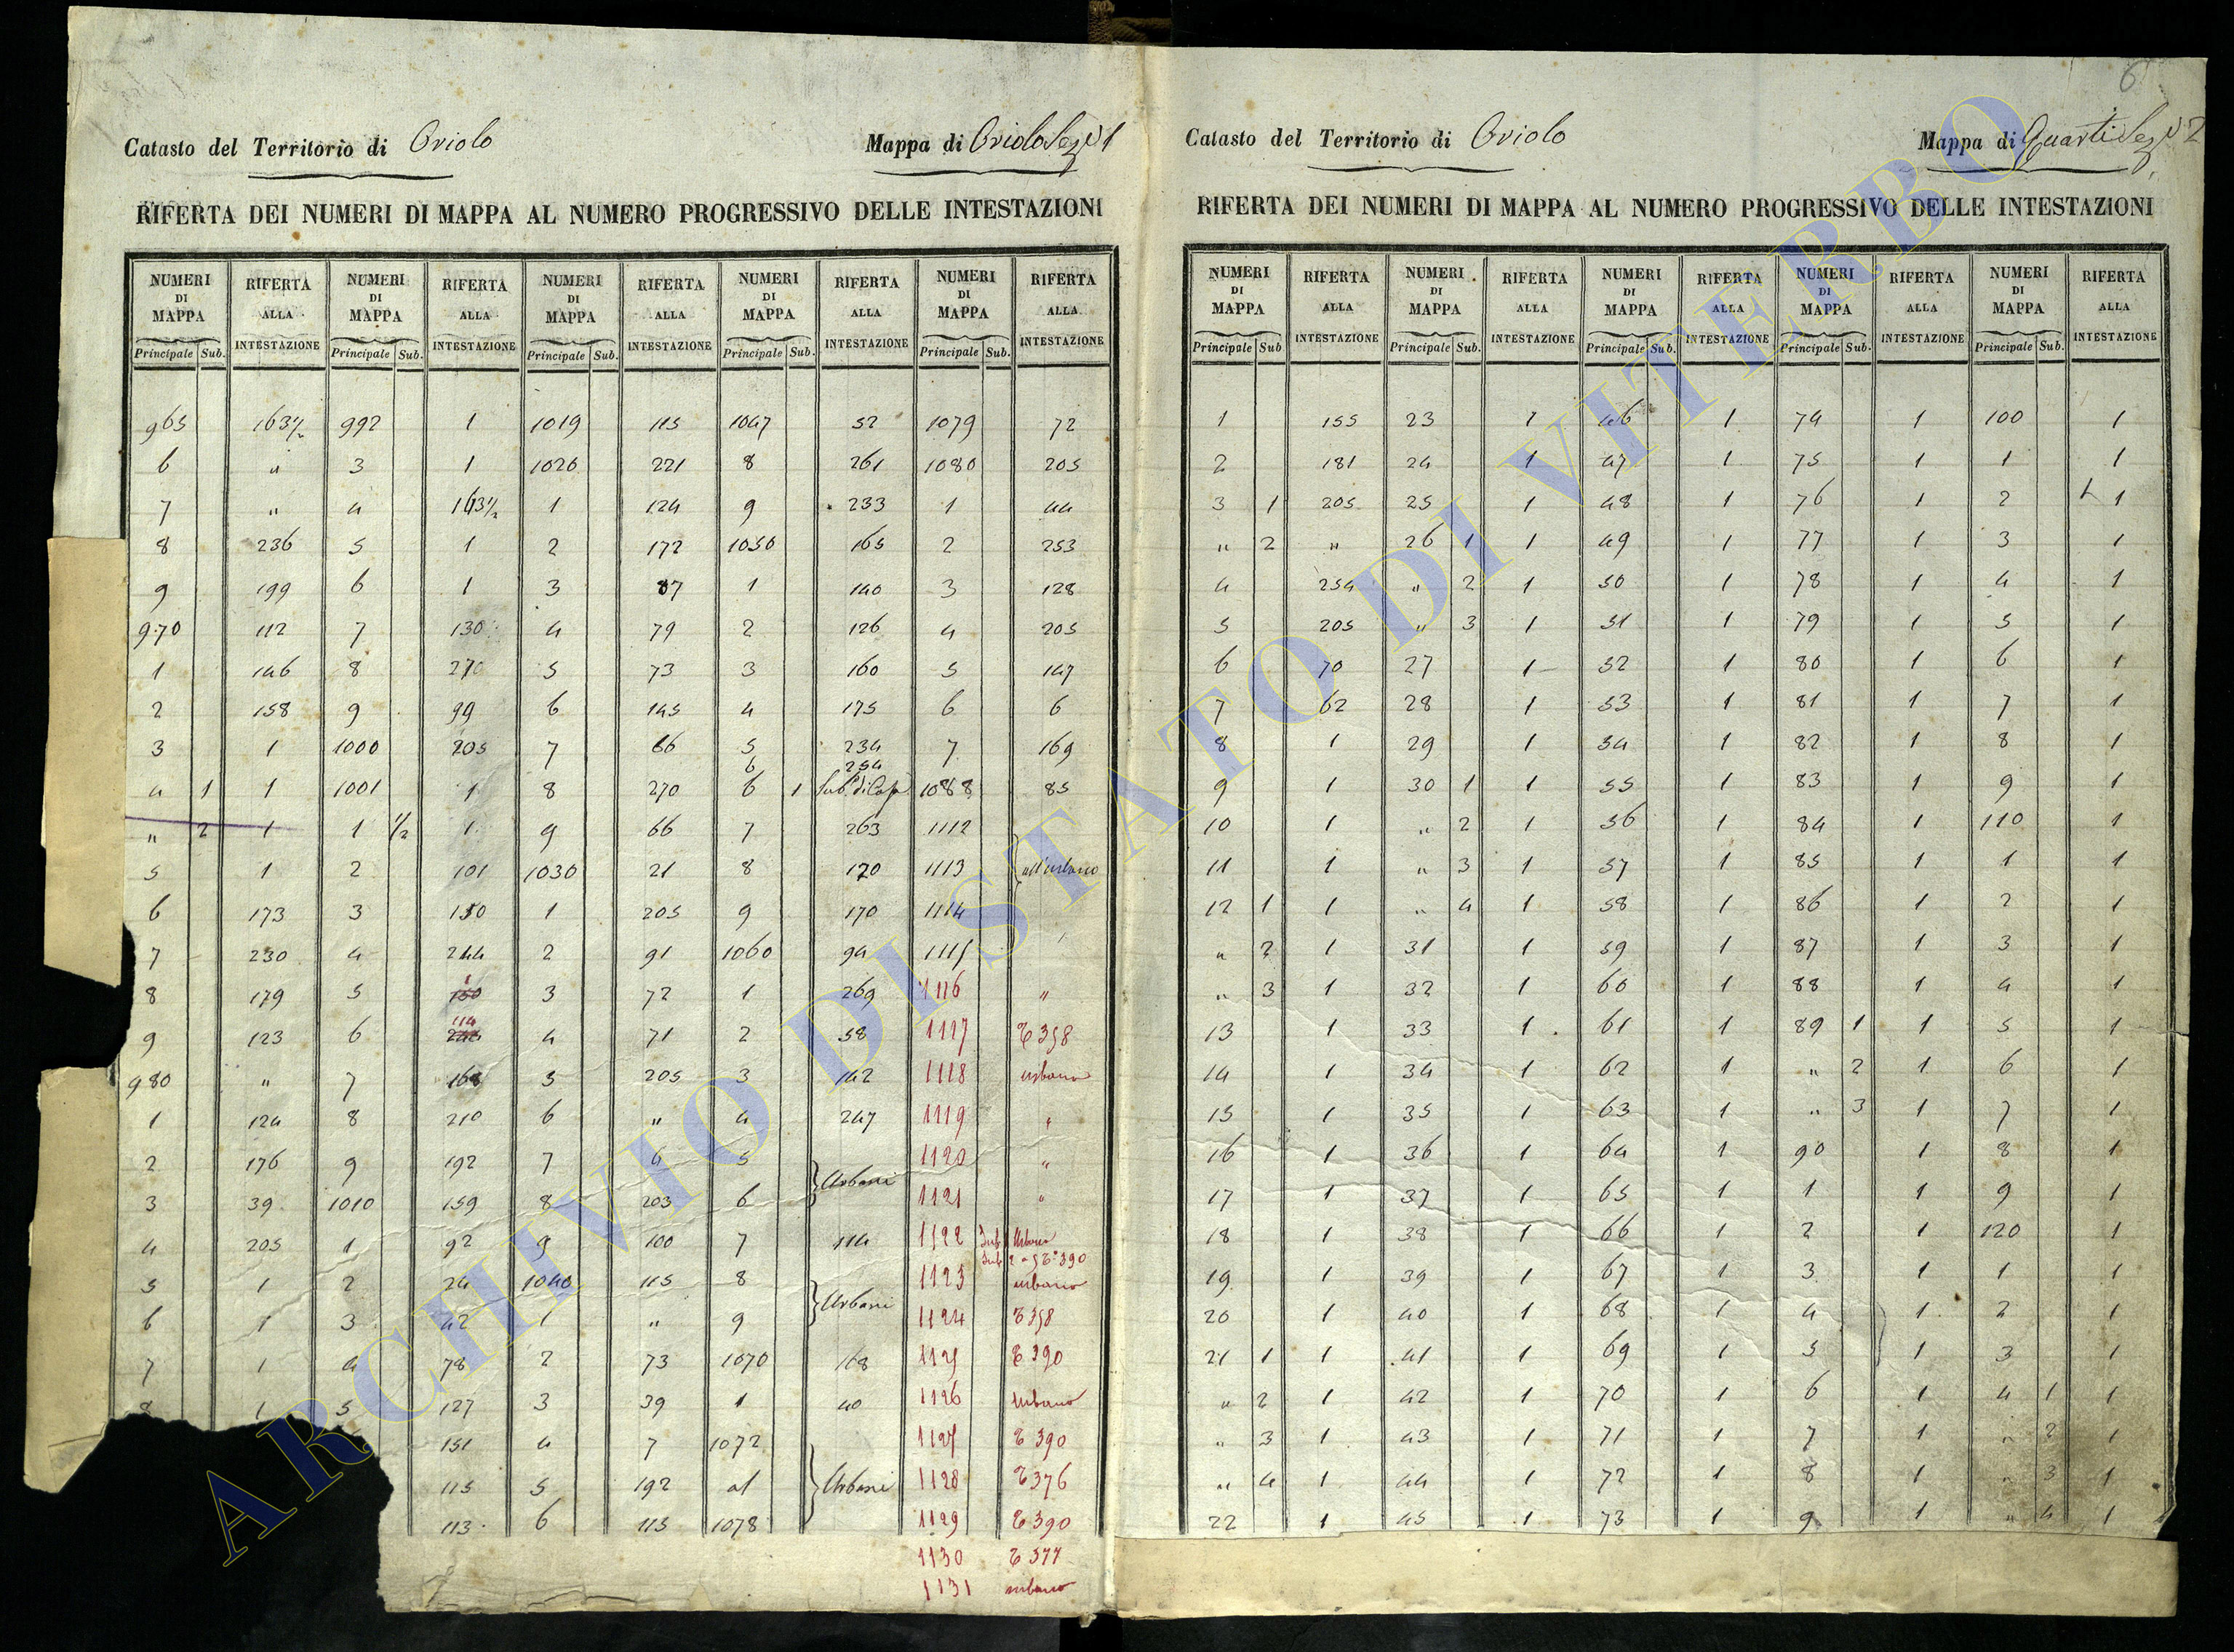 6
Catasto del Territorio di Oriolo Mappa di Oriolo Sez N 1
RIFERTA DEI NUMERI DI MAPPA AL NUMERO PROGRESSIVO DELLE INTESTAZIONI
NUMERI DI MAPPA RIFERTA ALLA INTESTAZIONE NUMERI DI MAPPA RIFERTA ALLA INTESTAZIONE NUMERI DI MAPPA RIFERTA ALLA INTESTAZIONE NUMERI DI MAPPA RIFERTA ALLA INTESTAZIONE NUMERI DI MAPPA RIFERTA ALLA INTESTAZIONE
Principale Sub. Principale Sub. Principale Sub. Principale Sub. Principale Sub.
965 163½ 992 1 1019 115 1047 52 1079 72
6 " 3 1 1020 221 8 261 1080 205
7 " 4 163½ 1 124 9 233 1 44
8 236 5 1 2 172 1050 165 2 253
9 199 6 1 3 87 1 140 3 128
970 112 7 130 4 79 2 126 4 205
1 146 8 270 5 73 3 160 5 147
2 158 9 99 6 145 4 175 6 6
3 1 1000 205 7 66 5 234 7 169
6 254
4 1 1 1001 1 8 270 6 1 1088 85
" 2 1 1 1/2 1 9 66 7 263 1112
5 1 2 101 1030 21 8 170 1113 all'urbano
6 173 3 150 1 205 9 170 1114
7 230 4 244 2 91 1060 94 1115
8 179 5 150 1 3 72 1 269 1116 "
9 123 6 244 114 4 71 2 58 1117 T 358
980 " 7 168 5 205 3 142 1118 urbano
1 124 8 210 6 " 4 247 1119 "
2 176 9 192 7 4 5 Urbani 1120 "
3 39 1010 159 8 203 6 1121 "
4 205 1 92 9 100 7 114 1122 Sub Urbano
5 1 2 24 1040 115 8 Urbani 1123 urbano
6 1 3 42 1 " 9 1124 T 358
7 1 4 78 2 73 1070 168 1125 T 390
8 1 5 127 3 39 1 40 1126 Urbano
151 4 7 1072 Urbani 1127 T 390
115 5 192 al 1128 T 376
113 6 113 1078 1129 T 390
1130 T 377
1131 urbano
Catasto del Territorio di Oriolo Mappa di Quarti Sez N 2
RIFERTA DEI NUMERI DI MAPPA AL NUMERO PROGRESSIVO DELLE INTESTAZIONI
NUMERI DI MAPPA RIFERTA ALLA INTESTAZIONE NUMERI DI MAPPA RIFERTA ALLA INTESTAZIONE NUMERI DI MAPPA RIFERTA ALLA INTESTAZIONE NUMERI DI MAPPA RIFERTA ALLA INTESTAZIONE NUMERI DI MAPPA RIFERTA ALLA INTESTAZIONE
Principale Sub Principale Sub. Principale Sub. Principale Sub. Principale Sub.
1 155 23 1 46 1 74 1 100 1
2 181 24 1 47 1 75 1 1 1
3 1 205 25 1 48 1 76 1 2 1
" 2 " 26 1 1 49 1 77 1 3 1
4 254 " 2 1 50 1 78 1 4 1
5 205 " 3 1 51 1 79 1 5 1
6 70 27 1 52 1 80 1 6 1
7 62 28 1 53 1 81 1 7 1
8 1 29 1 54 1 82 1 8 1
9 1 30 1 1 55 1 83 1 9 1
10 1 " 2 1 56 1 84 1 110 1
11 1 " 3 1 57 1 85 1 1 1
12 1 1 " 4 1 58 1 86 1 2 1
" 2 1 31 1 59 1 87 1 3 1
" 3 1 32 1 60 1 88 1 4 1
13 1 33 1 61 1 89 1 1 5 1
14 1 34 1 62 1 " 2 1 6 1
15 1 35 1 63 1 " 3 1 7 1
16 1 36 1 64 1 90 1 8 1
17 1 37 1 65 1 1 1 9 1
18 1 38 1 66 1 2 1 120 1
19 1 39 1 67 1 3 1 1 1
20 1 40 1 68 1 4 1 2 1
21 1 1 41 1 69 1 5 1 3 1
" 2 1 42 1 70 1 6 1 4 1 1
" 3 1 43 1 71 1 7 1 " 2 1
" 4 1 44 1 72 1 8 1 " 3 1
22 1 45 1 73 1 9 1 " 4 1
ARCHIVIO DI STATO DI VITERBO